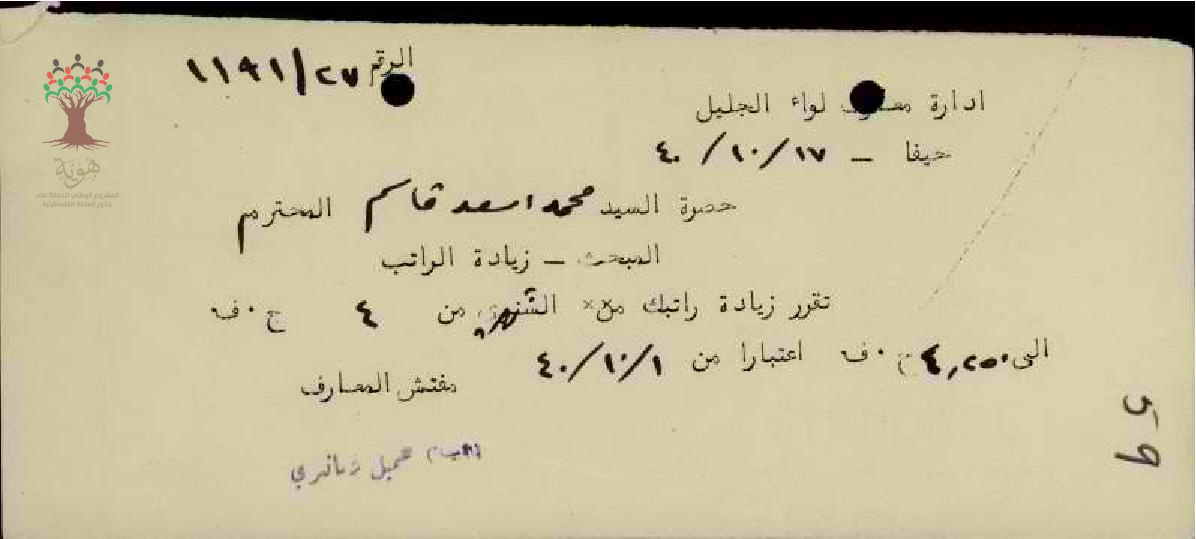 الرقم ١١٩١/٢٧
ادارة معارف لواء الجليل
حيفا - ٤٠/١٠/١٧
حضرة السيد محمد اسعد قاسم المحترم
المبحث - زيادة الراتب
تقرر زيادة راتبك من الشهري من ٤ ج٠ف
الى ٤,٢٥٠ ج٠ف اعتبارا من ٤٠/١٠/١
مفتش المعارف
جميل
59
هوية
المشروع الوطني للحفاظ على
جذور العائلة الفلسطينية